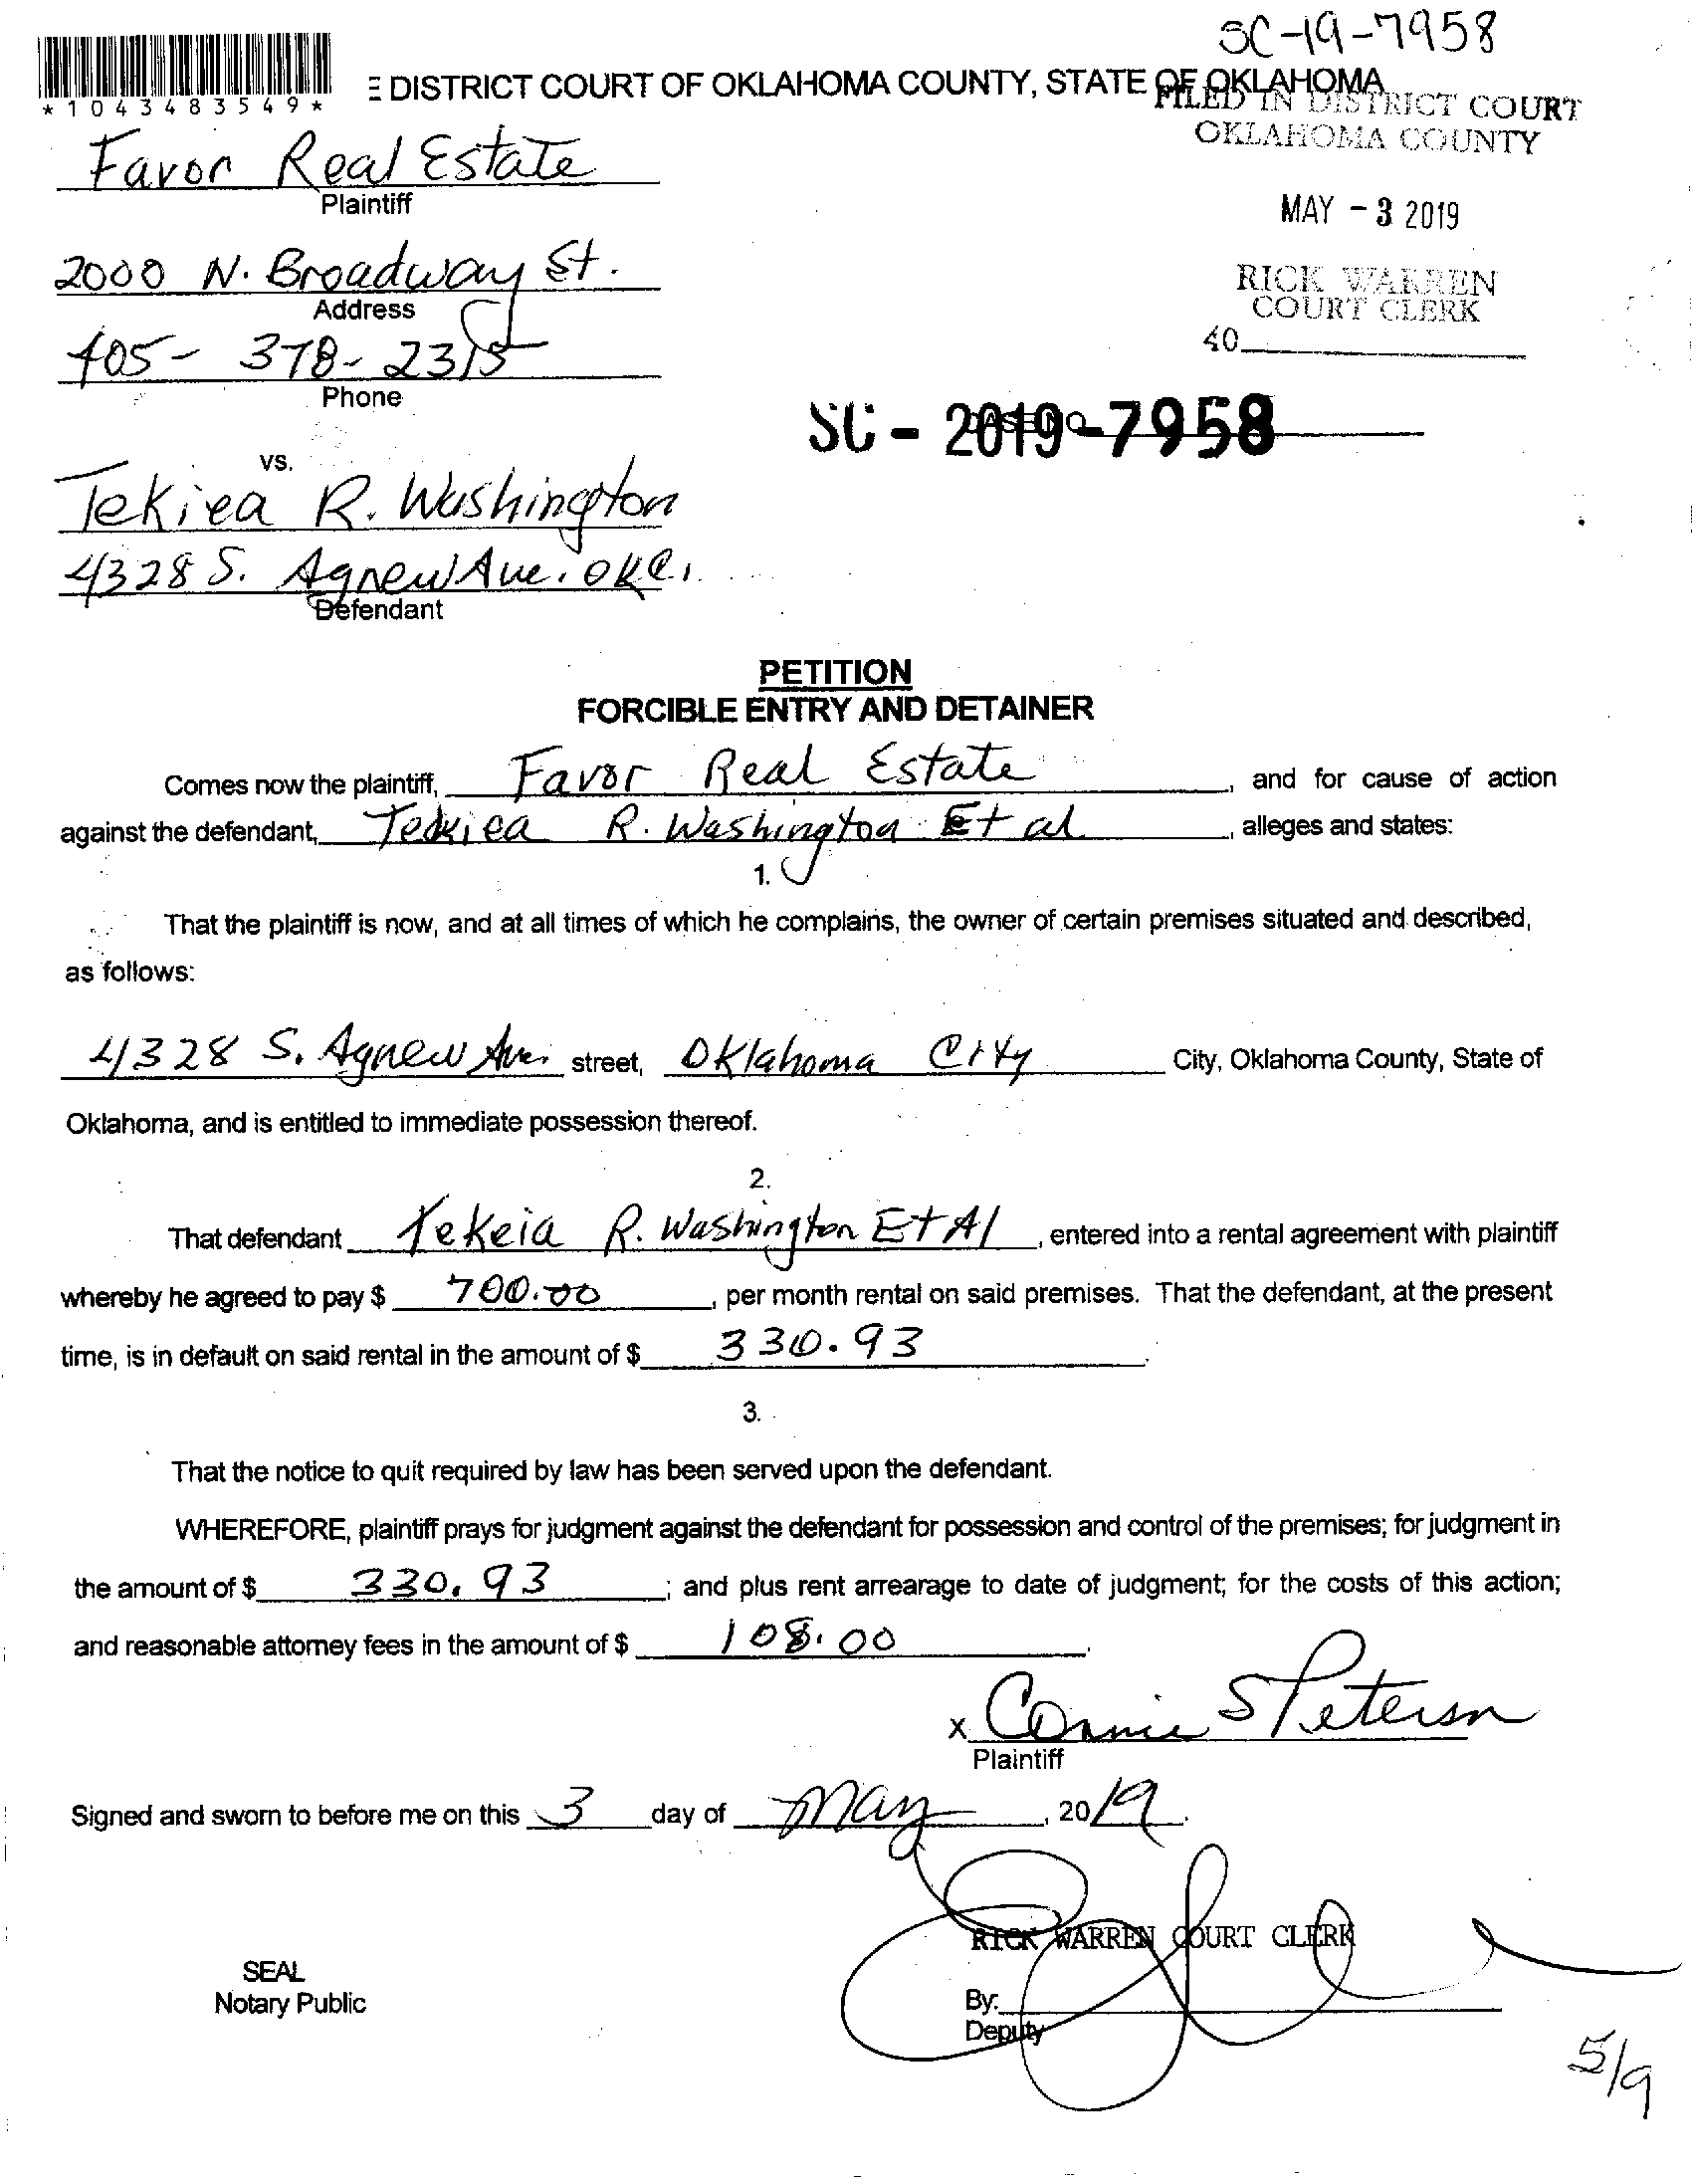 SC-19-7958
*1043483549*
E DISTRICT COURT OF OKLAHOMA COUNTY, STATE OF OKLAHOMA
FILED IN DISTRICT COURT
OKLAHOMA COUNTY
Favor Real Estate
Plaintiff
MAY - 3 2019
2000 N. Broadway St.
Address
RICK WARREN
COURT CLERK
40
405-378-2315
Phone
SC - 2019-7958
CASE NO
vs.
Tekiea R. Washington
4328 S. Agnew Ave. OKC.
Defendant
PETITION
FORCIBLE ENTRY AND DETAINER
Comes now the plaintiff, Favor Real Estate, and for cause of action
against the defendant, Tekiea R. Washington Et al, alleges and states:
1.
That the plaintiff is now, and at all times of which he complains, the owner of certain premises situated and described,
as follows:
4328 S. Agnew Ave. street, Oklahoma City City, Oklahoma County, State of
Oklahoma, and is entitled to immediate possession thereof.
2.
That defendant Tekeia R. Washington Et Al, entered into a rental agreement with plaintiff
whereby he agreed to pay $ 700.00, per month rental on said premises. That the defendant, at the present
time, is in default on said rental in the amount of $ 330.93.
3.
That the notice to quit required by law has been served upon the defendant.
WHEREFORE, plaintiff prays for judgment against the defendant for possession and control of the premises; for judgment in
the amount of $ 330.93; and plus rent arrearage to date of judgment; for the costs of this action;
and reasonable attorney fees in the amount of $ 108.00.
x Connie S Peterson
Plaintiff
Signed and sworn to before me on this 3 day of May, 2019.
RICK WARREN COURT CLERK
SEAL
Notary Public
By:
Deputy
5/9